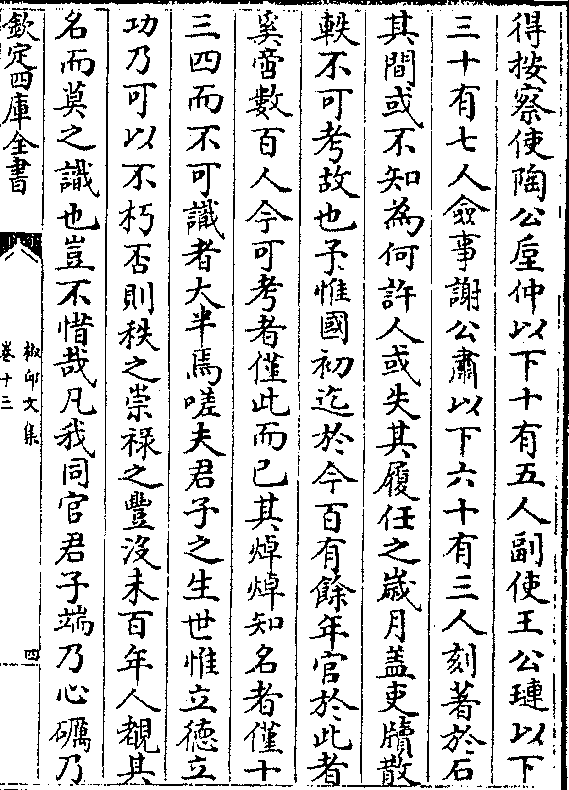 得按察使陶公垕仲以下十有五人副使王公璉以下
三十有七人僉事謝公肅以下六十有三人刻著於石
其間或不知為何許人或失其履任之歲月盖吏牘散
軼不可考故也予惟國初迄於今百有餘年官於此者
奚啻數百人今可考者僅此而已其焯焯知名者僅十
三四而不可識者大半焉嗟夫君子之生世惟立德立
功乃可以不朽否則秩之崇禄之豐沒未百年人覩其
名而莫之識也豈不惜哉凡我同官君子端乃心礪乃
欽定四庫全書
椒邱文集
卷十三
四